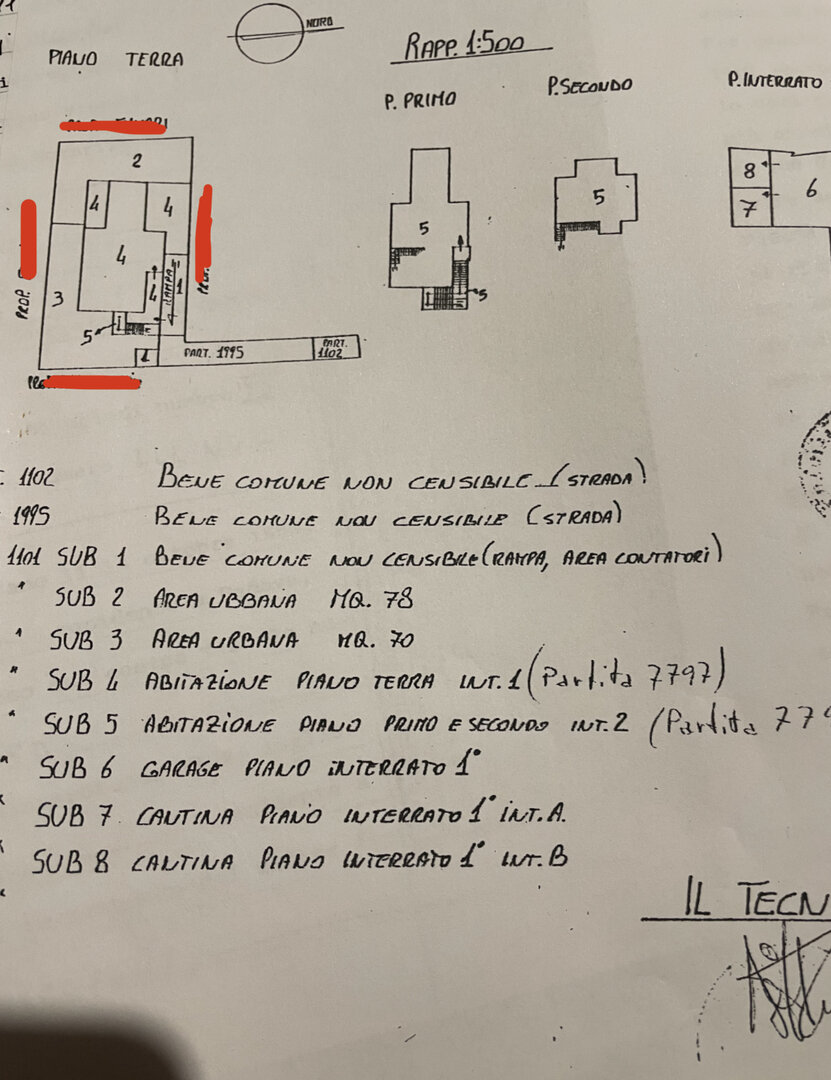 PIANO TERRA
NORD
RAPP. 1:500
P. PRIMO
P. SECONDO
P. INTERRATO
2
4
4
4
4
3
5
RAMPA
1
1
PROP.
PROP.
PART. 1995
PART. 1102
5
5
5
8
7
6
1102 BENE COMUNE NON CENSIBILE (STRADA)
1995 BENE COMUNE NON CENSIBILE (STRADA)
1101 SUB 1 BENE COMUNE NON CENSIBILE (RAMPA, AREA CONTATORI)
" SUB 2 AREA UBBANA MQ. 78
" SUB 3 AREA URBANA MQ. 70
" SUB 4 ABITAZIONE PIANO TERRA INT. 1 (Partita 7797)
" SUB 5 ABITAZIONE PIANO PRIMO E SECONDO INT. 2 (Partita 779
" SUB 6 GARAGE PIANO INTERRATO 1°
" SUB 7 CANTINA PIANO INTERRATO 1° INT. A.
" SUB 8 CANTINA PIANO INTERRATO 1° INT. B
IL TECN